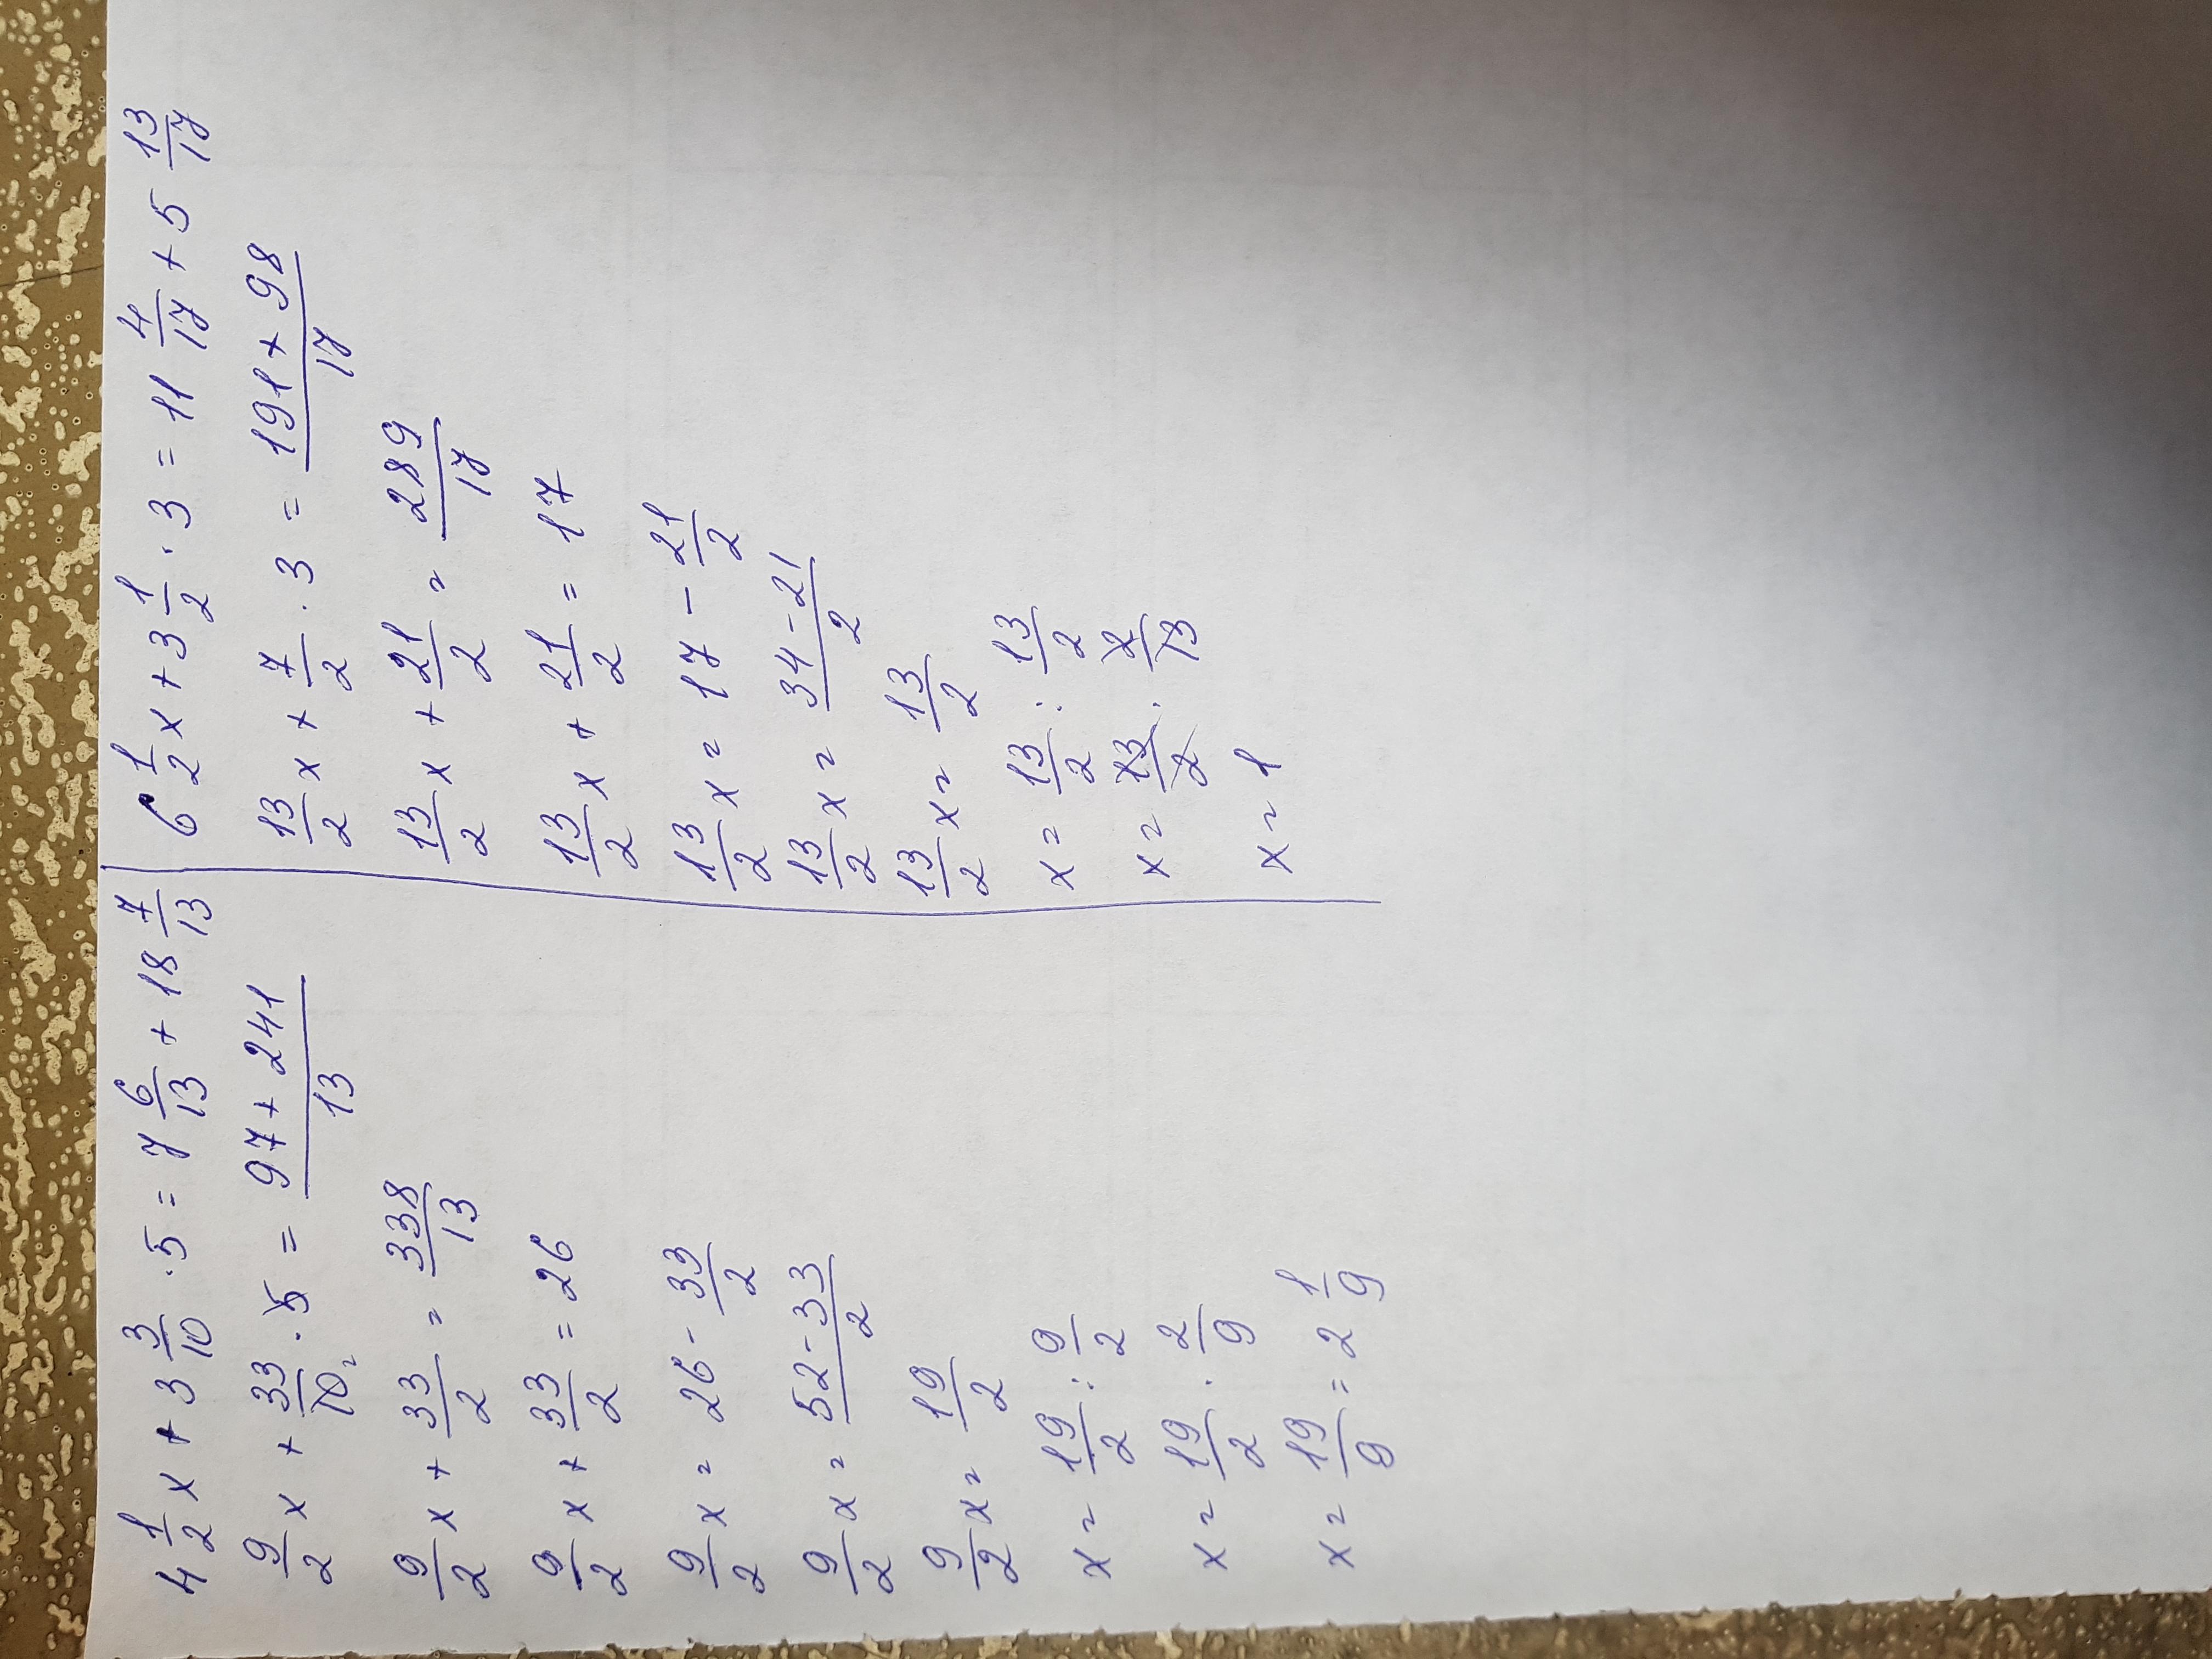 4 1/2 x + 3 3/10 · 5 = 7 6/13 + 18 7/13
9/2 x + 33/10 2 · 5 = (97 + 241)/13
9/2 x + 33/2 = 338/13
9/2 x + 33/2 = 26
9/2 x = 26 - 33/2
9/2 x = (52 - 33)/2
9/2 x = 19/2
x = 19/2 : 9/2
x = 19/2 · 2/9
x = 19/9 = 2 1/9
6 1/2 x + 3 1/2 · 3 = 11 4/17 + 5 13/17
13/2 x + 7/2 · 3 = (191 + 98)/17
13/2 x + 21/2 = 289/17
13/2 x + 21/2 = 17
13/2 x = 17 - 21/2
13/2 x = (34 - 21)/2
13/2 x = 13/2
x = 13/2 : 13/2
x = 13/2 · 2/13
x = 1